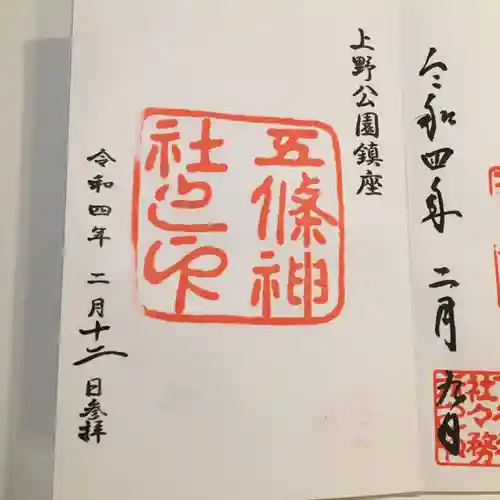 令和四年 二月 九日
上野公園鎮座
五條神
社之印
令和四年 二月十二日参拝